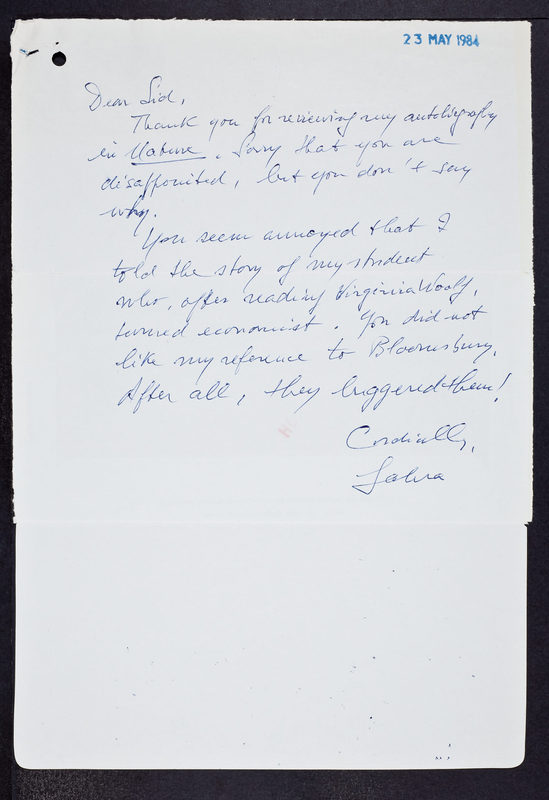 23 MAY 1984
Dear Sid,
Thank you for reviewing my autobiography
in Nature. Sorry that you are
disappointed, but you don't say
why.
You seem annoyed that I
told the story of my student
who, after reading Virginia Woolf,
turned economist. You did not
like my reference to Bloomsbury.
After all, they buggered them!
Cordially,
Salva